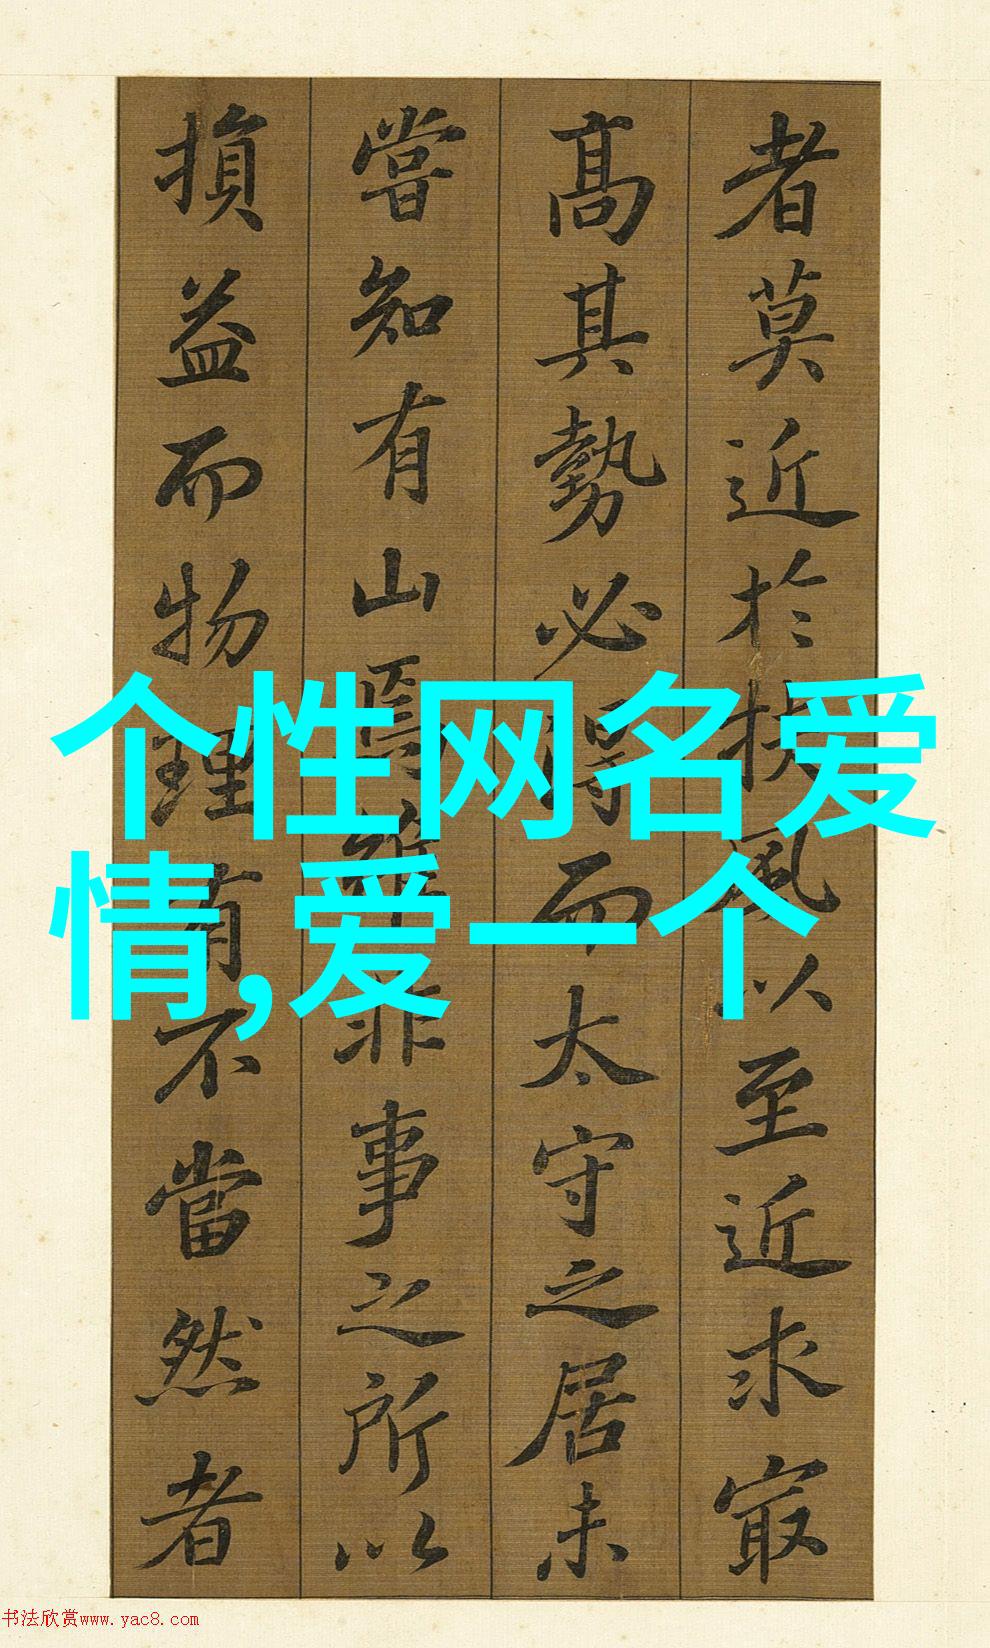 者莫近於扶風以至近求㝡
高其勢必得而太守之居未
嘗知有山焉雖非事之所以
損益而物理有不當然者
个性网名爱
情,爱一个
书法欣赏www.yac8.com